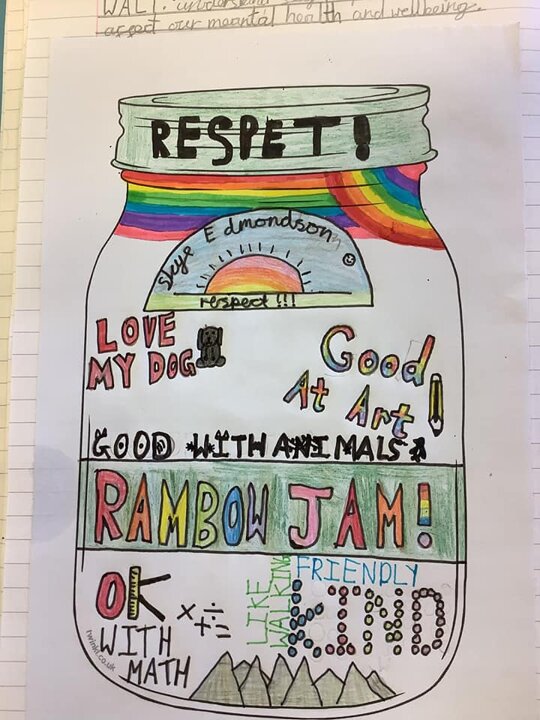 WALT: understand
aspect our meantal health and wellbeing.
RESPET!
Skye Edmondson
respect!!!
LOVE
MY DOG
Good
At Art
GOOD WITH ANIMALS
RAMBOW JAM!
OK
WITH
MATH
LIKE
WALKING
FRIENDLY
KIND
twinkl.co.uk